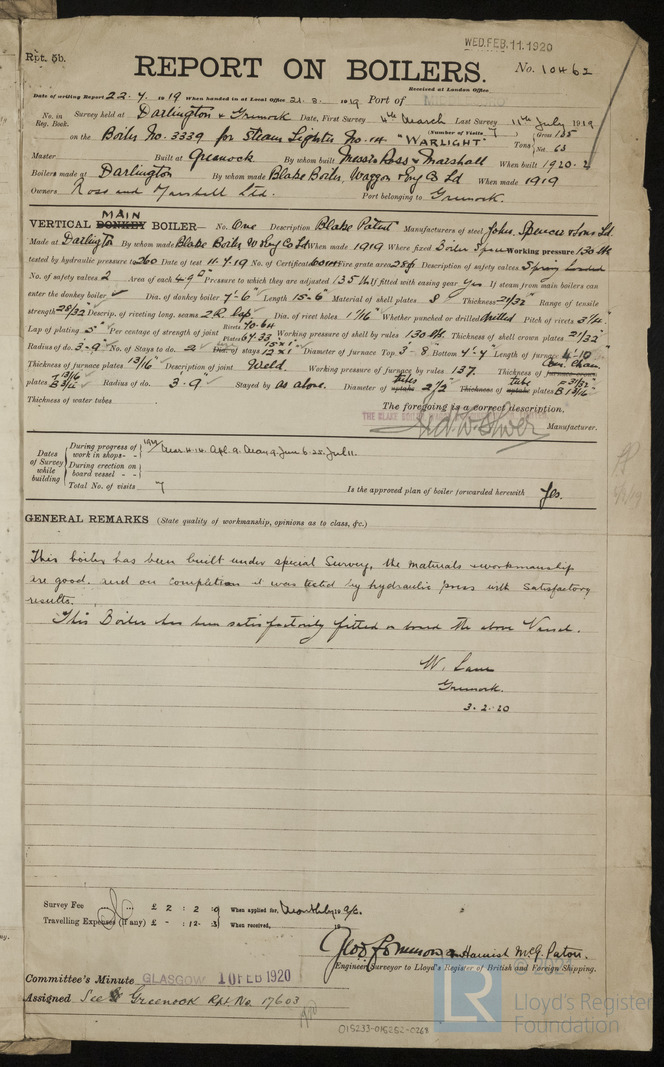 WED. FEB. 11. 1920
Rpt. 5b.
REPORT ON BOILERS.
No. 10462
Received at London Office
Date of writing Report 22.7.1919 When handed in at Local Office 21.8.1919 Port of
No. in Reg. Book. Survey held at Darlington & Greenock Date, First Survey 4th March Last Survey 11th July 1919
on the Boiler No. 3339 for Steam Lighter No. 14 "WARLIGHT" (Number of Visits 7) Tons Gross 135 Net 63
Master Built at Greenock By whom built Messrs Ross & Marshall When built 1920. 2
Boilers made at Darlington By whom made Blake Boiler, Waggon & Eng Co Ld When made 1919
Owners Ross and Marshall Ltd. Port belonging to Greenock.
VERTICAL MAIN DONKEY BOILER— No. One Description Blake Patent Manufacturers of steel John Spencer & Sons Ld.
Made at Darlington By whom made Blake Boiler W & Eng Co Ld When made 1919 Where fixed Boiler Space Working pressure 130 lbs
tested by hydraulic pressure to 260 Date of test 11.7.19 No. of Certificate Fire grate area Description of safety valves Spring loaded
No. of safety valves 2 Area of each 4.9" Pressure to which they are adjusted 135 lbs If fitted with easing gear Yes. If steam from main boilers can
enter the donkey boiler Dia. of donkey boiler 7'-6" Length 15'-6" Material of shell plates S Thickness 21/32" Range of tensile
strength 28/32 Descrip. of riveting long. seams 2R Lap Dia. of rivet holes 1 1/16" Whether punched or drilled Drilled Pitch of rivets 3 1/4"
Lap of plating 5" Per centage of strength of joint Rivets 70.64 Plates 67.33 Working pressure of shell by rules 130 lbs. Thickness of shell crown plates 21/32"
Radius of do. 3'-9" No. of Stays to do. 2 Dia. of stays 15 x 1" 12 x 1" Diameter of furnace Top 3'-8 Bottom 4'-4 Length of furnace 4'-10
Thickness of furnace plates 13/16" Description of joint Weld Working pressure of furnace by rules 137. Thickness of furnace crown Com. Cham.
plates Radius of do. 3'-9" Stayed by As above. Diameter of uptake tubes 2 1/2" Thickness of uptake tube plates
Thickness of water tubes
The foregoing is a correct description,
Manufacturer.
Dates of Survey while building
During progress of work in shops - - 1919 Mar. 4. 14. Apl. 9. May 9. Jun 6. 25. Jul 11.
During erection on board vessel - - -
Total No. of visits 7
Is the approved plan of boiler forwarded herewith Yes.
GENERAL REMARKS (State quality of workmanship, opinions as to class, &c.)
This boiler has been built under special Survey, the materials & workmanship
are good. and on completion it was tested by hydraulic press with satisfactory
results.
This Boiler has been satisfactorily fitted on board the above Vessel.
W. Lane
Greenock.
3.2.20
Survey Fee ... £ 2 : 2 : 9 When applied for, Monthly a/c.
Travelling Expenses (if any) £ - : 12 : 3 When received,
Harnish McG. Paton.
Engineer Surveyor to Lloyd's Register of British and Foreign Shipping.
Committee's Minute GLASGOW 10 FEB 1920
Assigned See Greenock Rpt. No. 17603
015233-015252-0268
Lloyd's Register
Foundation